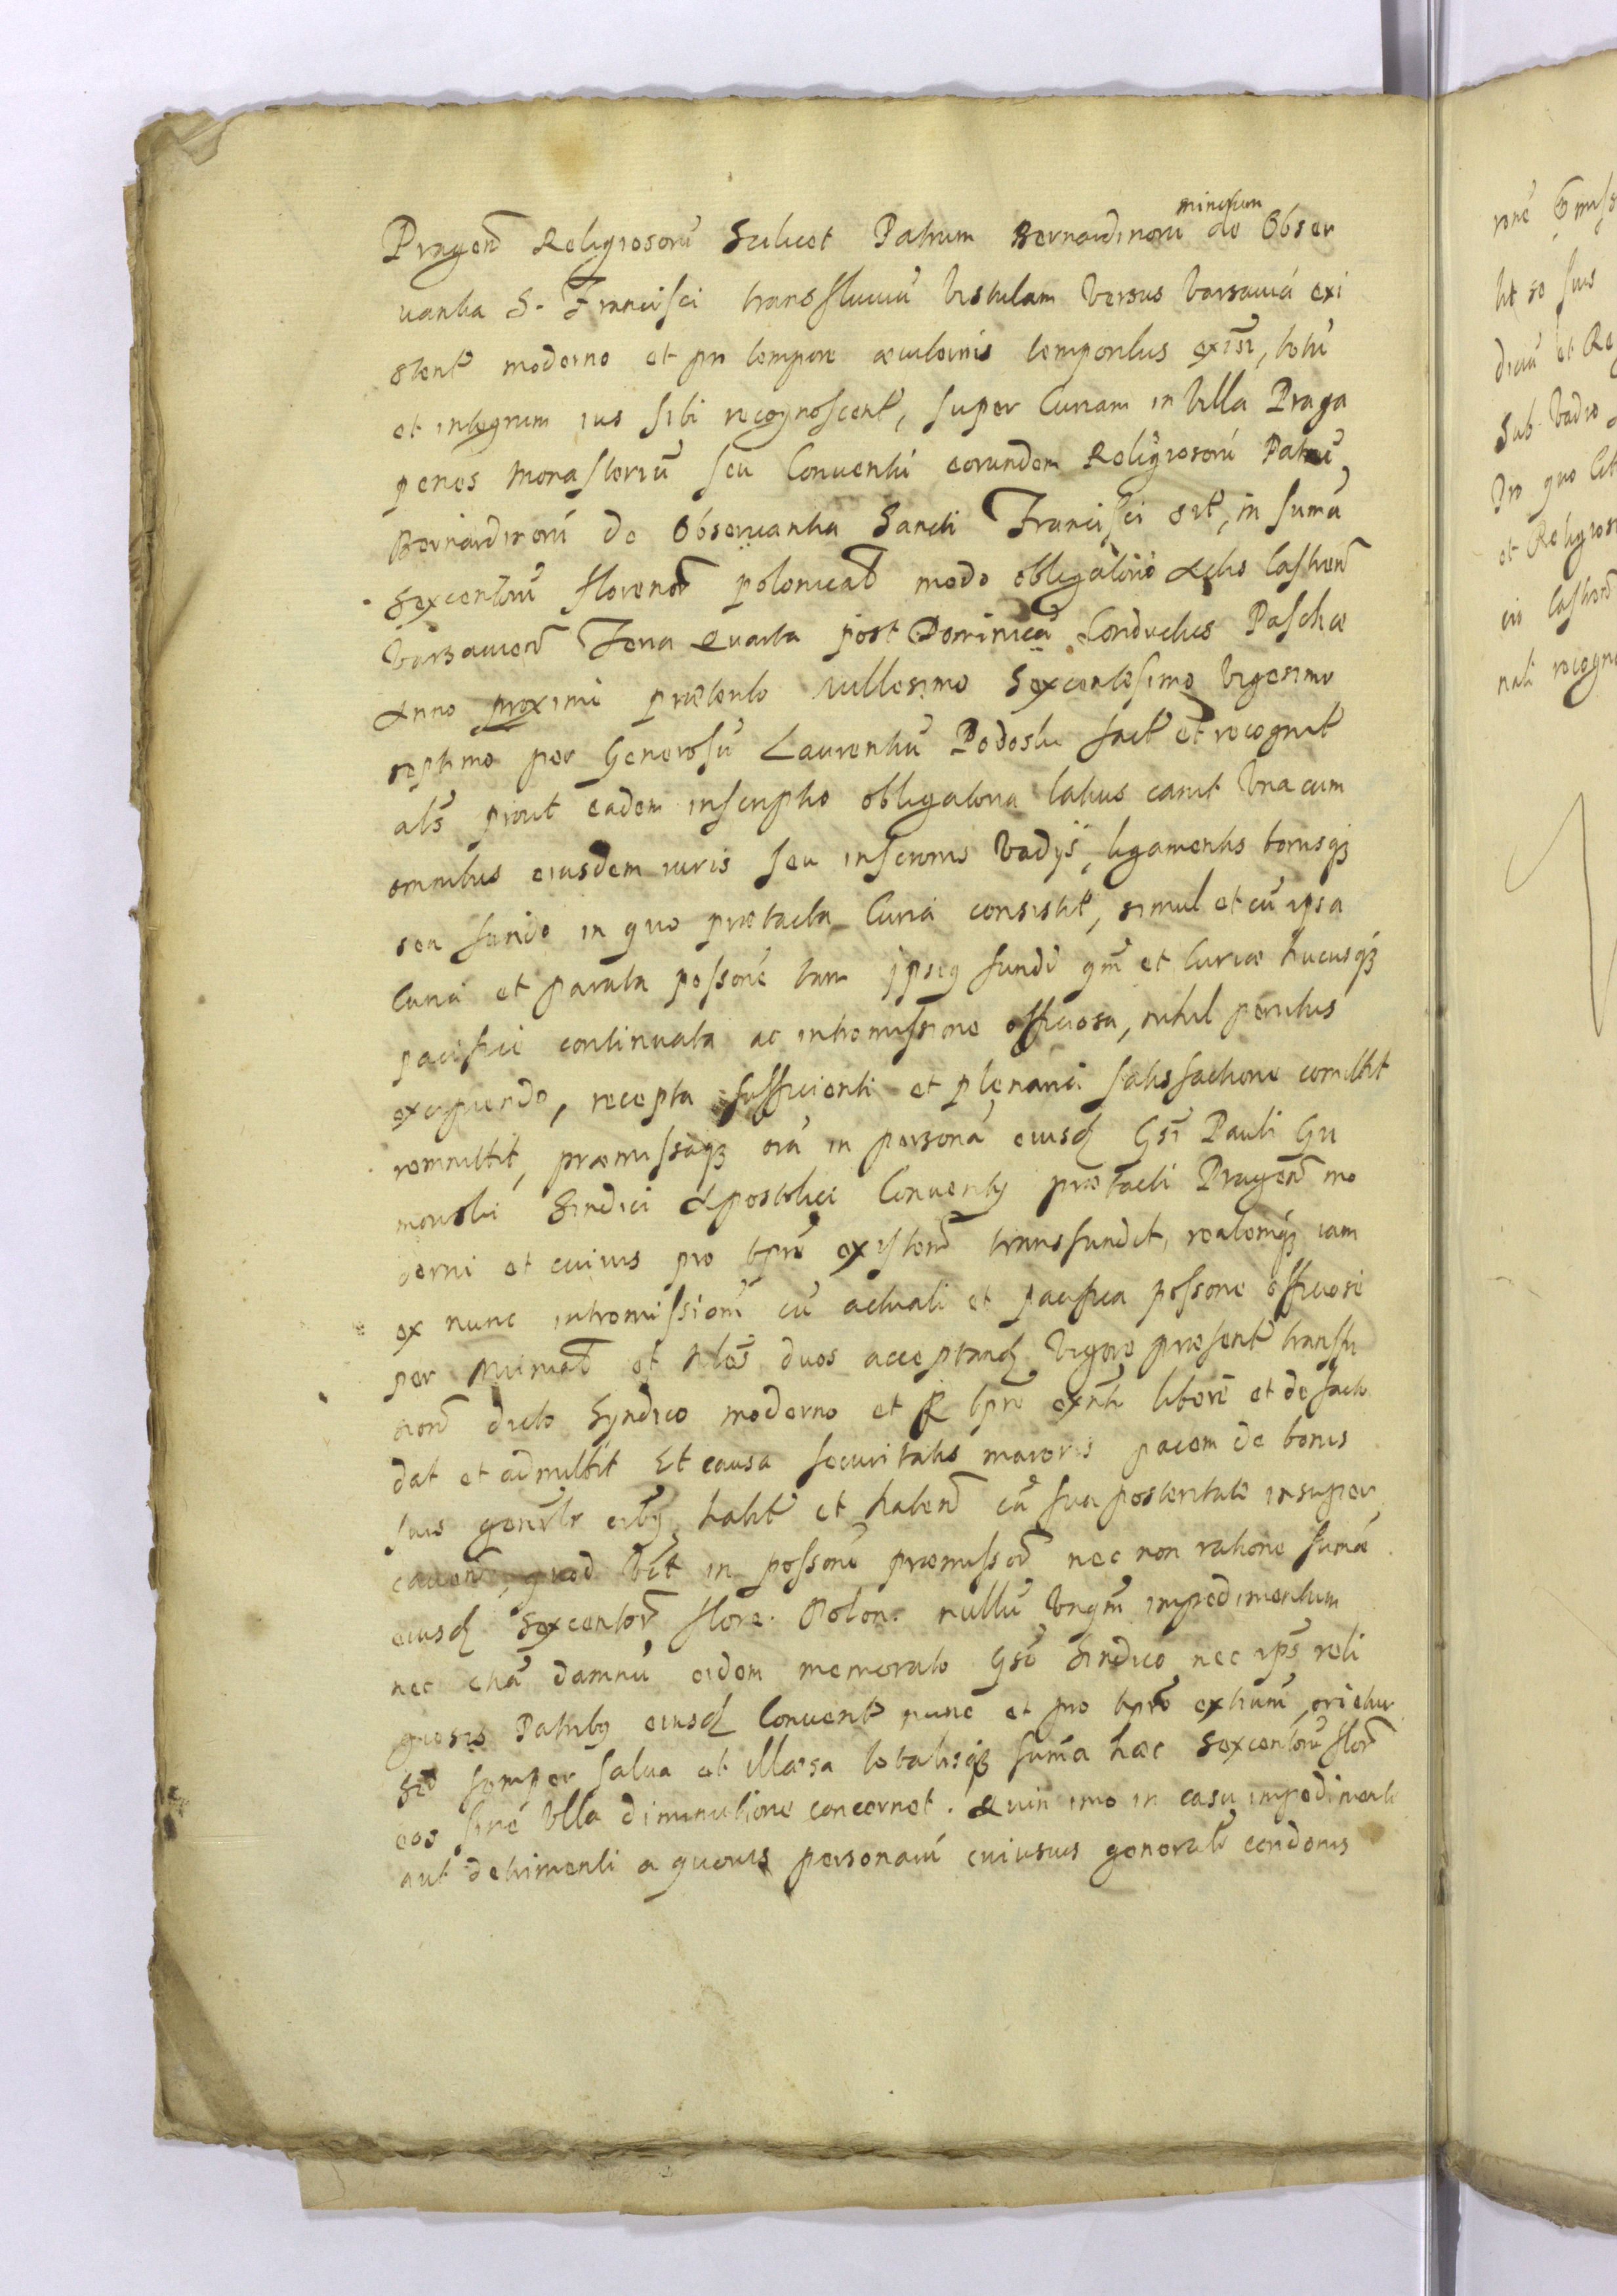 minorum
Pragen̄ Religiosorū Scilicet Patrum Bernardinorū de Obser
uantia S. Francisci trans fluuiū Vistulam versus Varsauiá exi
stent̄ moderno et pro tempore æuiternis temporibus exnti, totū
et integrum ius sibi recognoscent̄, super Curiam in Villa Praga
penes Monasteriū seu Conuentū eorundem Religiosorū Patrū
Bernardinorū de Obseruantia Sancti Francisci sit̄, in sumā
Sexcentorū florenor̄ polonical̄ modo obligatorio Actis Castren̄
Varsauien̄ Feria Quarta post Dominicā Conductus Paschæ
Anno proximi præterito Millesimo Sexcentesimo Vigesimo
septimo per Generosū Laurentiū Podoski fact̄ et recognit̄
als̄ prout eadem inscriptio obligatoria latius canit Vna cum
omnibus eiusdem iuris seu inscronis Vadijs, ligamentis bonisq3
seu fundo in quo prætacta Curia consistit, simul et cū ipsa
Curia et parata possone tam ipsius fundi qm̄ et Curiæ hucusq3
pacificè continuata ac intromissione officiosa, nihil penitus
excipiendo, recepta sufficienti et plenaria satisfactione comittit
remittit, præmissaq3 oīa in personā eiusd Gsī Pauli Gu
mowski Sindici Apostolici Conuentus prætacti Pragen̄ mo
derni et cuiuis pro tprē existen̄ transfundit, realemq3 iam
ex nunc intromissionē cū actuali et pacifica possone officiose
per Ministral̄ et Nbles duos acceptand Vigore præsent̄ transfu
sion̄ dicto Syndico moderno et p tprē exnti liberè et de facto
dat et admittit Et causa securitatis maioris pacem de bonis
suis genrlr oibus habit̄ et haben̄ cū sua posteritate insuper
cauen̄, quod in possone præmissor̄ nec non ratione sumæ
eiusd Sexcentor̄ flore. Polon. nullū Vnqm̄ impedimentum
nec etiā damnū eidem memorato Gso Sindico nec ips̄ reli
giosis Patribus eiusd Conuent̄ nunc et pro tprē orietur
Sed semper salua et illæsa totalisq3 suma hæc Sexcentorū flor̄
eos sine Vlla diminutione concernet. Quin imo in casu impedimenti
aut detrimenti a quouis personarū cuiusuis generalr condonis